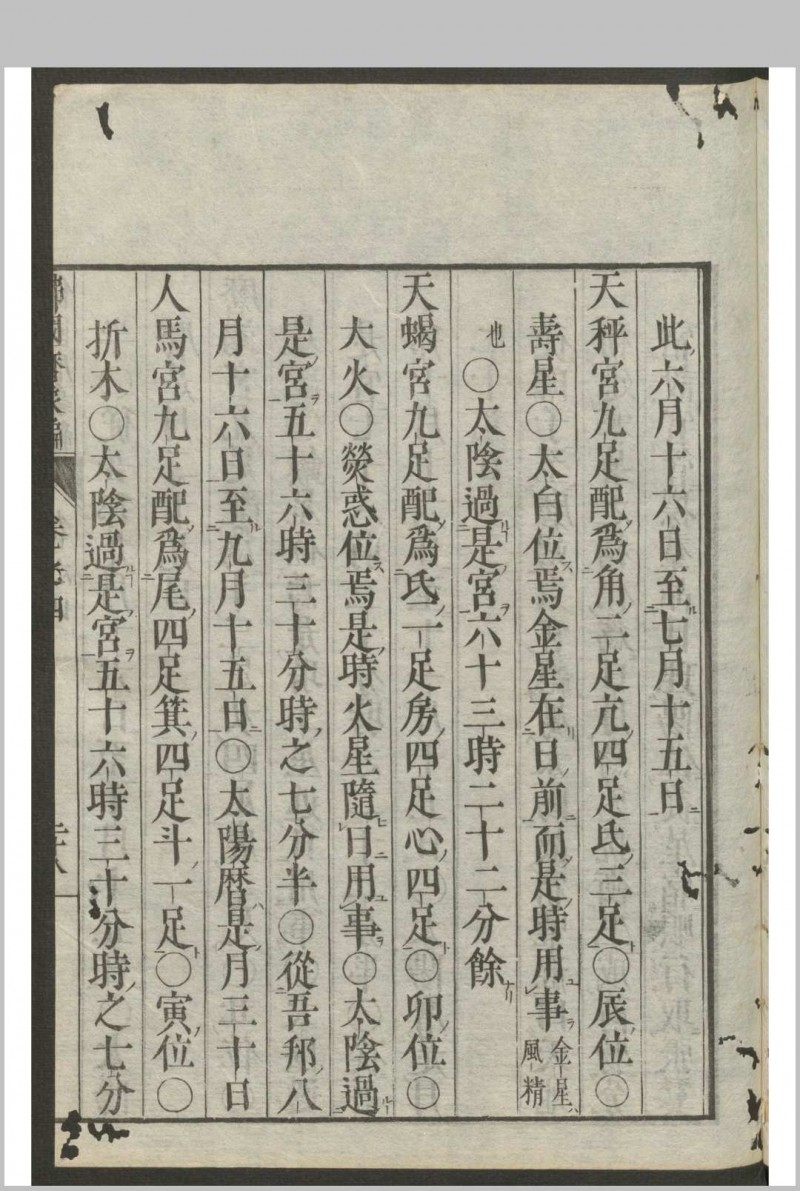 此六月十六日至七月十五日
天秤宮九足配爲角二足亢四足氐三足〇辰位〇
壽星〇太白位焉金星在日前而是時用事金星風精
也〇太陰過是宮六十三時二十二分餘
天蝎宮九足配爲氐一足房四足心四足〇卯位〇
大火〇熒惑位焉是時火星隨日用事〇太陰過
是宮五十六時三十分時之七分半〇從吾邦八
月十六日至九月十五日〇太陽曆是月三十日
人馬宮九足配爲尾四足箕四足斗一足〇寅位〇
折木〇太陰過是宮五十六時三十分時之七分